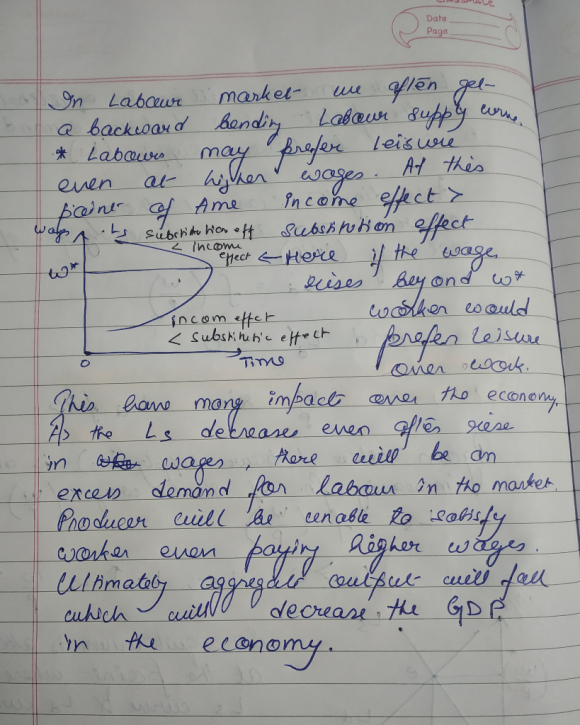 Date
Page
In Labour market we often get
a backward bending Labour supply curve.
* Labours may prefer leisure
even at higher wages. At this
point of Ame income effect >
substitution effect
wages Ls substitution eff
< Income
effect ← Here if the wage
w* rises beyond w*
worker would
incom effct prefer leisure
< substitutic effect over work.
0 Time
This have many impact over the economy.
As the Ls decreases even after rise
in wages, there will be an
excess demand for labour in the market.
Producer will be unable to satisfy
worker even paying higher wages.
Ultimately aggregate output will fall
which will decrease the GDP
in the economy.